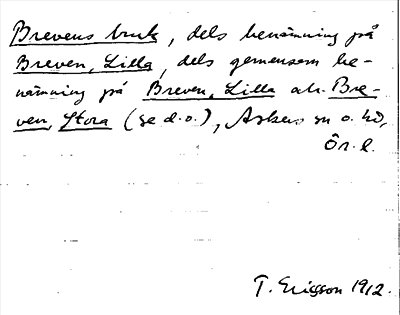 Brevens bruk, dels benämning på
Breven, Lilla, dels gemensam be-
nämning på Breven, Lilla och Bre-
ven, Stora (se d.o.), Askers sn o. hd,
Ör. l.
T. Ericsson 1912.